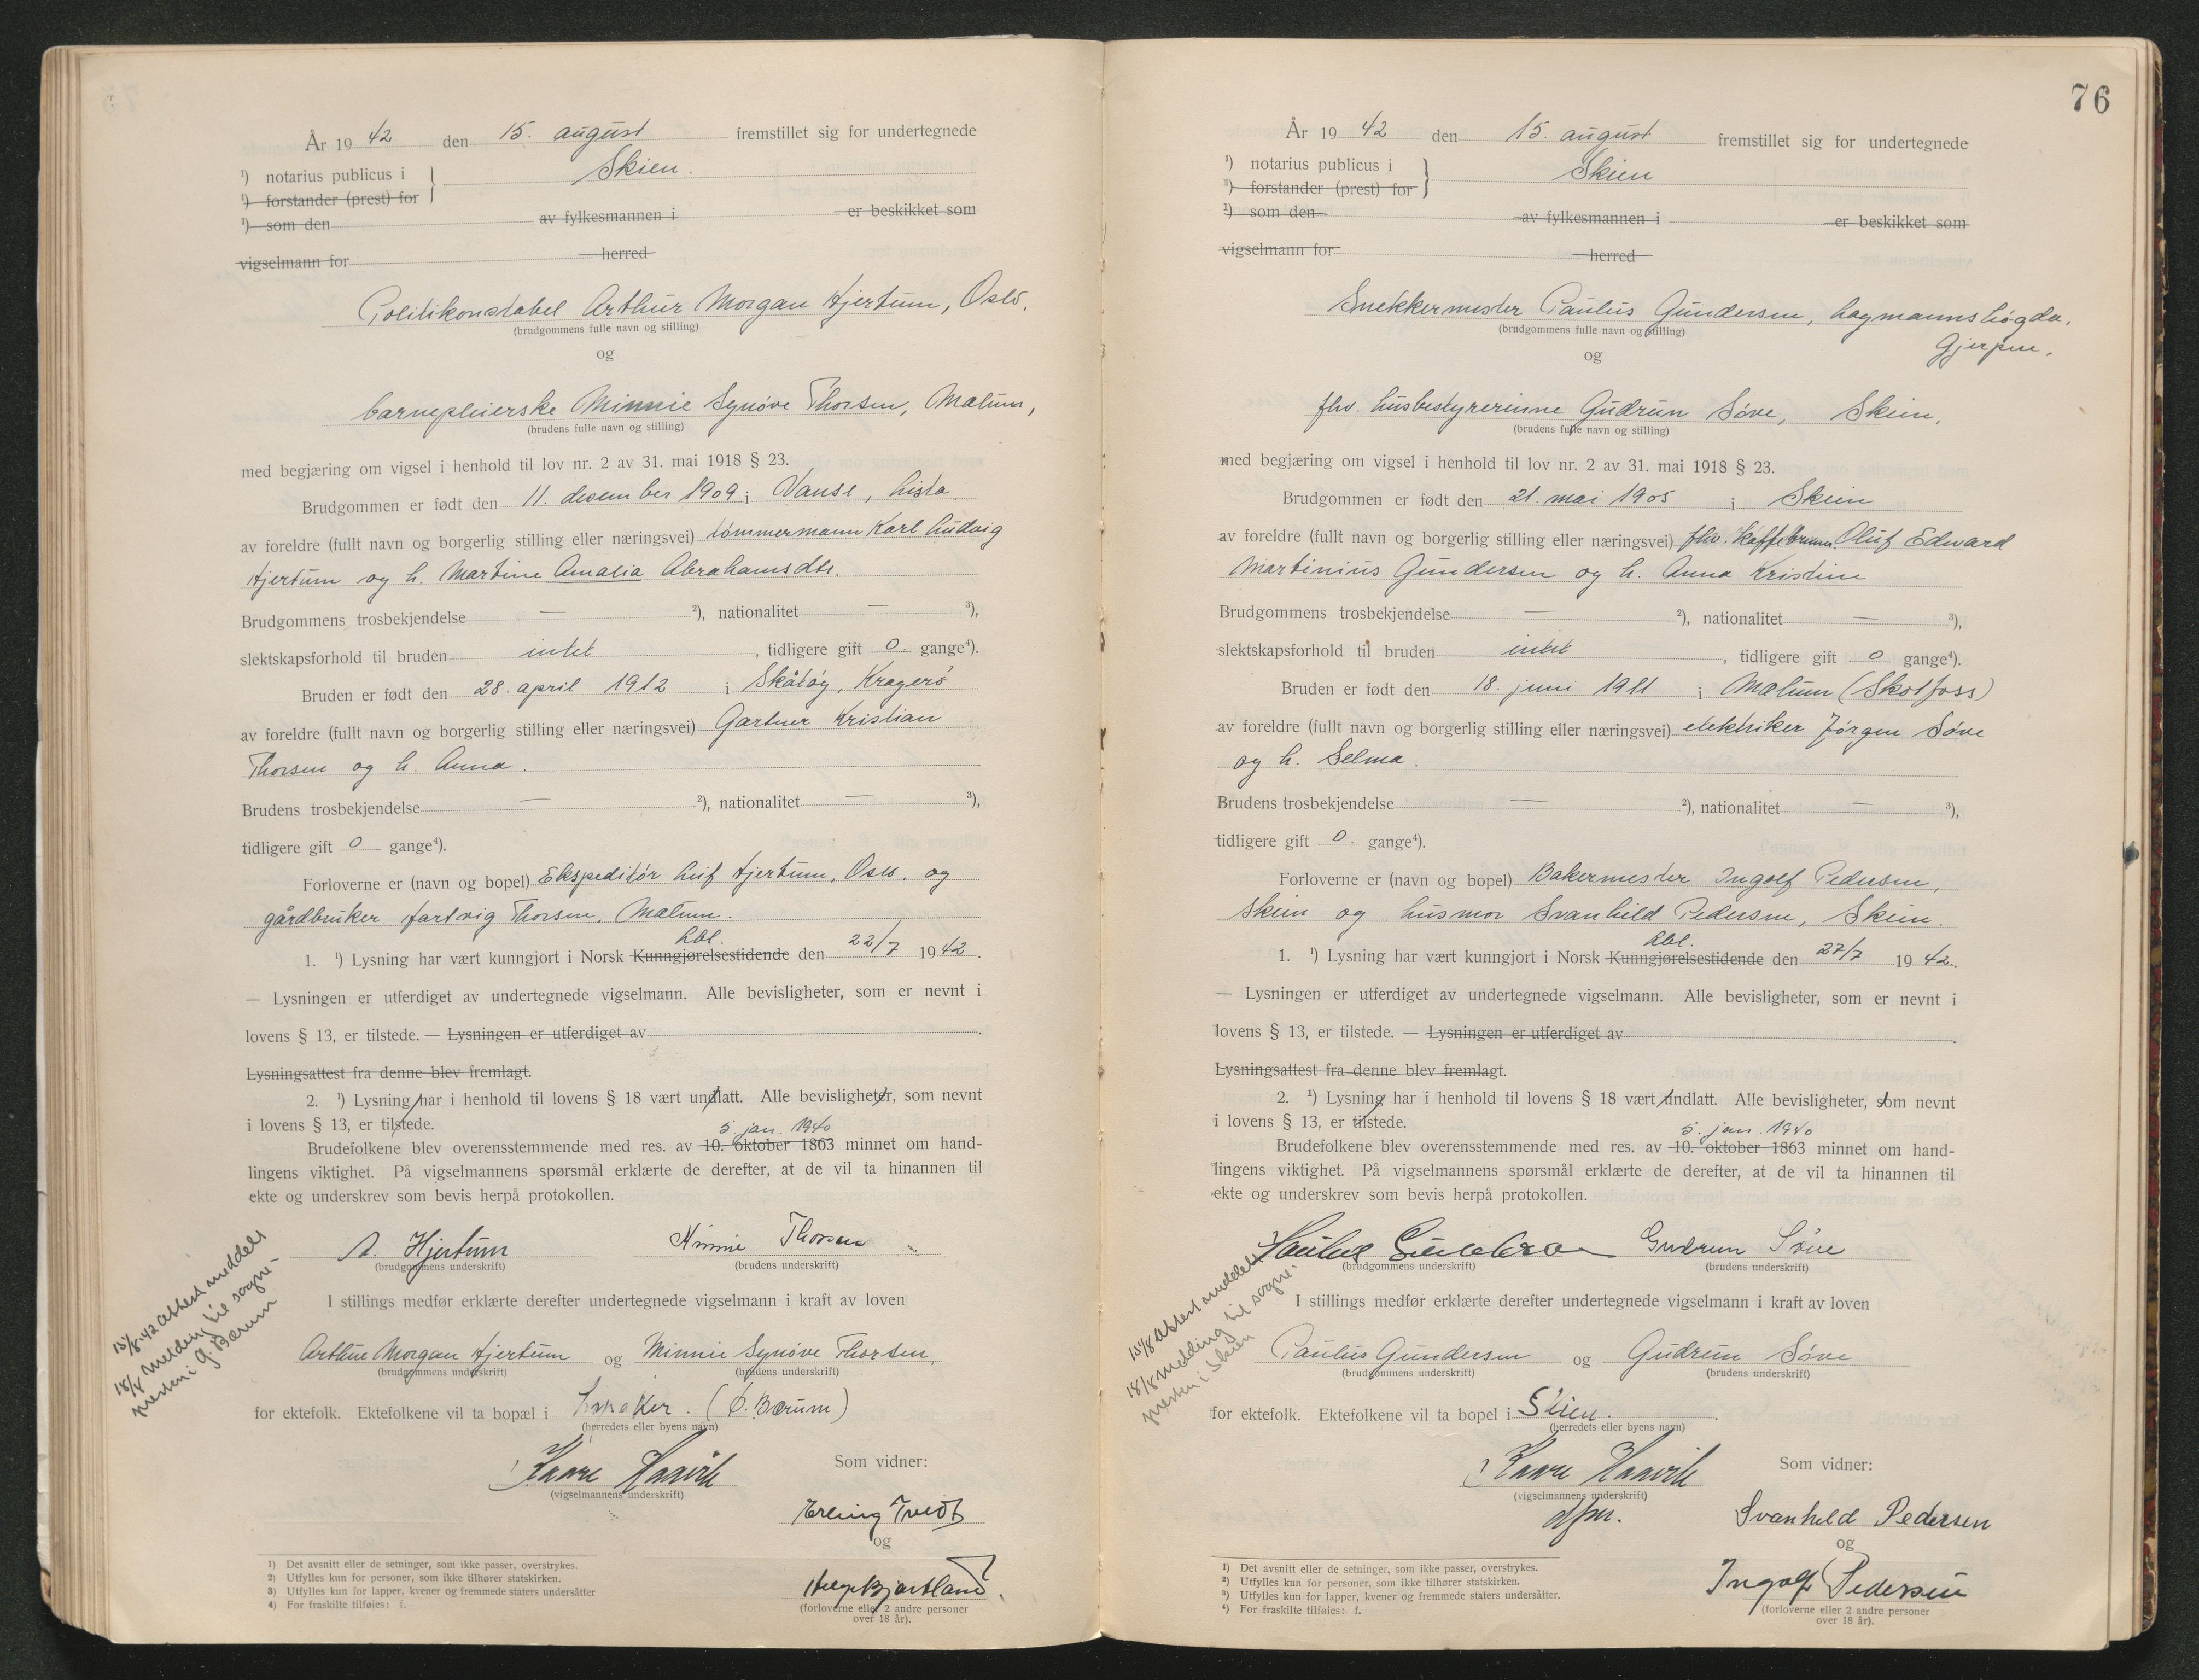 År 19 42 den 15. august fremstillet sig for undertegnede
¹) notarius publicus i
Skien.
¹) forstander (prest) for
¹) som den av fylkesmannen i er beskikket som
vigselmann for herred
Politikonstabel Arthur Morgan Hjertum, Oslo.
(brudgommens fulle navn og stilling)
og
barnepleierske Minnie Synøve Thorsen, Melum,
(brudens fulle navn og stilling)
med begjæring om vigsel i henhold til lov nr. 2 av 31. mai 1918 § 23.
Brudgommen er født den 11. desember 1909 i Vanse, Lista.
av foreldre (fullt navn og borgerlig stilling eller næringsvei) tømmermann Karl Ludvig
Hjertum og h. Martine Amalia Abrahamsdtr.
Brudgommens trosbekjendelse — ²), nationalitet — ³),
slektskapsforhold til bruden intet , tidligere gift 0. gange⁴).
Bruden er født den 28. april 1912 i Skåtøy, Kragerø
av foreldre (fullt navn og borgerlig stilling eller næringsvei) Gartner Kristian
Thorsen og h. Anna.
Brudens trosbekjendelse — ²), nationalitet — ³),
tidligere gift 0 gange⁴).
Forloverne er (navn og bopel) Ekspeditør Leif Hjertum, Oslo. og
gårdbruker Hartvig Thorsen, Melum.
Lbl.
1. ¹) Lysning har vært kunngjort i Norsk Kunngjørelsestidende den 22/7 19 42.
— Lysningen er utferdiget av undertegnede vigselmann. Alle bevisligheter, som er nevnt i
lovens § 13, er tilstede. — Lysningen er utferdiget av .
Lysningsattest fra denne blev fremlagt.
2. ¹) Lysning har i henhold til lovens § 18 vært undlatt. Alle bevisligheter, som nevnt
i lovens § 13, er tilstede.
5 jan. 1940
Brudefolkene blev overensstemmende med res. av 10. oktober 1863 minnet om hand-
lingens viktighet. På vigselmannens spørsmål erklærte de derefter, at de vil ta hinannen til
ekte og underskrev som bevis herpå protokollen.
A. Hjertum Minnie Thorsen
(brudgommens underskrift) (brudens underskrift)
I stillings medfør erklærte derefter undertegnede vigselmann i kraft av loven
15/8-42 attest meddelt
18/8 melding til sogne-
presten i Ø. Bærum
Arthur Morgan Hjertum og Minnie Synøve Thorsen,
(brudgommens underskrift) (brudens underskrift)
for ektefolk. Ektefolkene vil ta bopæl i Lysaker. (Ø. Bærum)
(herredets eller byens navn)
Kaare Haavik
(vigselmannens underskrift)
Som vidner:
Erling Tvedt
og
Helge Bjortland.
(forloverne eller 2 andre personer
over 18 år).
1) Det avsnitt eller de setninger, som ikke passer, overstrykes.
2) Utfylles kun for personer, som ikke tilhører statskirken.
3) Utfylles kun for lapper, kvener og fremmede staters undersåtter
4) For fraskilte tilføies: f.
76
År 19 42 den 15. august fremstillet sig for undertegnede
¹) notarius publicus i
Skien
¹) forstander (prest) for
¹) som den av fylkesmannen i er beskikket som
vigselmann for herred
Snekkermester Paulus Gundersen, Lagmannshøgda,
(brudgommens fulle navn og stilling)
Gjerpen,
og
fhv. husbestyrerinne Gudrun Søve, Skien,
(brudens fulle navn og stilling)
med begjæring om vigsel i henhold til lov nr. 2 av 31. mai 1918 § 23.
Brudgommen er født den 21. mai 1905 i Skien
av foreldre (fullt navn og borgerlig stilling eller næringsvei) fhv. kaffebrenner Oluf Edward
Martinius Gundersen og h. Anna Kristine
Brudgommens trosbekjendelse — ²), nationalitet — ³),
slektskapsforhold til bruden intet , tidligere gift 0 gange⁴).
Bruden er født den 18. juni 1911 i Melum (Skotfoss)
av foreldre (fullt navn og borgerlig stilling eller næringsvei) elektriker Jørgen Søve
og h. Selma.
Brudens trosbekjendelse — ²), nationalitet — ³),
tidligere gift 0. gange⁴).
Forloverne er (navn og bopel) Bakermester Ingolf Pedersen,
Skien og husmor Svanhild Pedersen, Skien.
Lbl.
1. ¹) Lysning har vært kunngjort i Norsk Kunngjørelsestidende den 27/7 19 42.
— Lysningen er utferdiget av undertegnede vigselmann. Alle bevisligheter, som er nevnt i
lovens § 13, er tilstede. — Lysningen er utferdiget av .
Lysningsattest fra denne blev fremlagt.
2. ¹) Lysning har i henhold til lovens § 18 vært undlatt. Alle bevisligheter, som nevnt
i lovens § 13, er tilstede.
5. jan. 1940
Brudefolkene blev overensstemmende med res. av 10. oktober 1863 minnet om hand-
lingens viktighet. På vigselmannens spørsmål erklærte de derefter, at de vil ta hinannen til
ekte og underskrev som bevis herpå protokollen.
Paulus Gundersen Gudrun Søve
(brudgommens underskrift) (brudens underskrift)
I stillings medfør erklærte derefter undertegnede vigselmann i kraft av loven
15/8 attest meddelt
18/8 melding til sogne-
presten i Skien
Paulus Gundersen og Gudrun Søve
(brudgommens underskrift) (brudens underskrift)
for ektefolk. Ektefolkene vil ta bopel i Skien.
(herredets eller byens navn)
Kaare Haavik
(vigselmannens underskrift)
dfm.
Som vidner:
Svanhild Pedersen
og
Ingolf Pedersen
(forloverne eller 2 andre personer
over 18 år).
¹) Det avsnitt eller de setninger, som ikke passer, overstrykes.
²) Utfylles kun for personer, som ikke tilhører statskirken.
³) Utfylles kun for lapper, kvener og fremmede staters undersåtter.
⁴) For fraskilte tilføies: f.